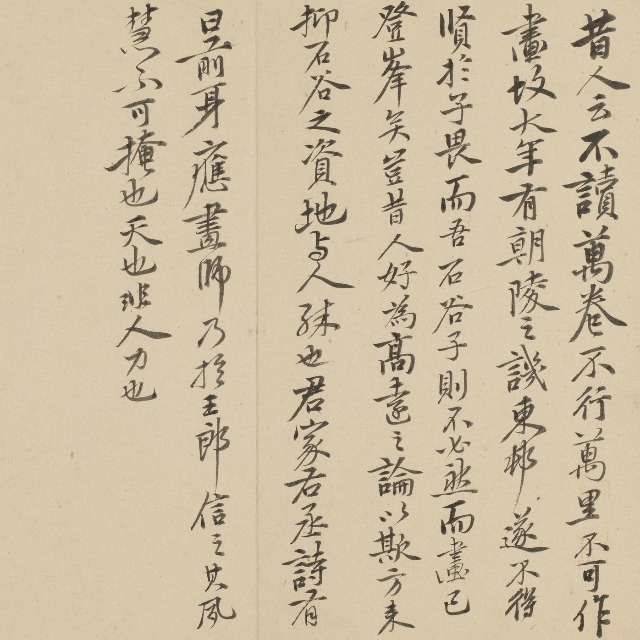 昔人云不讀萬卷不行萬里不可作
畫故大年有朝陵之譏東邨遂不得
賢於子畏而吾石谷子則不必盡而畫已
登峯矣豈昔人好為高遠之論以欺方来
抑石谷之資地与人殊也君家右丞詩有
曰前身應畫師乃於王郎信之其夙
慧不可掩也天也非人力也